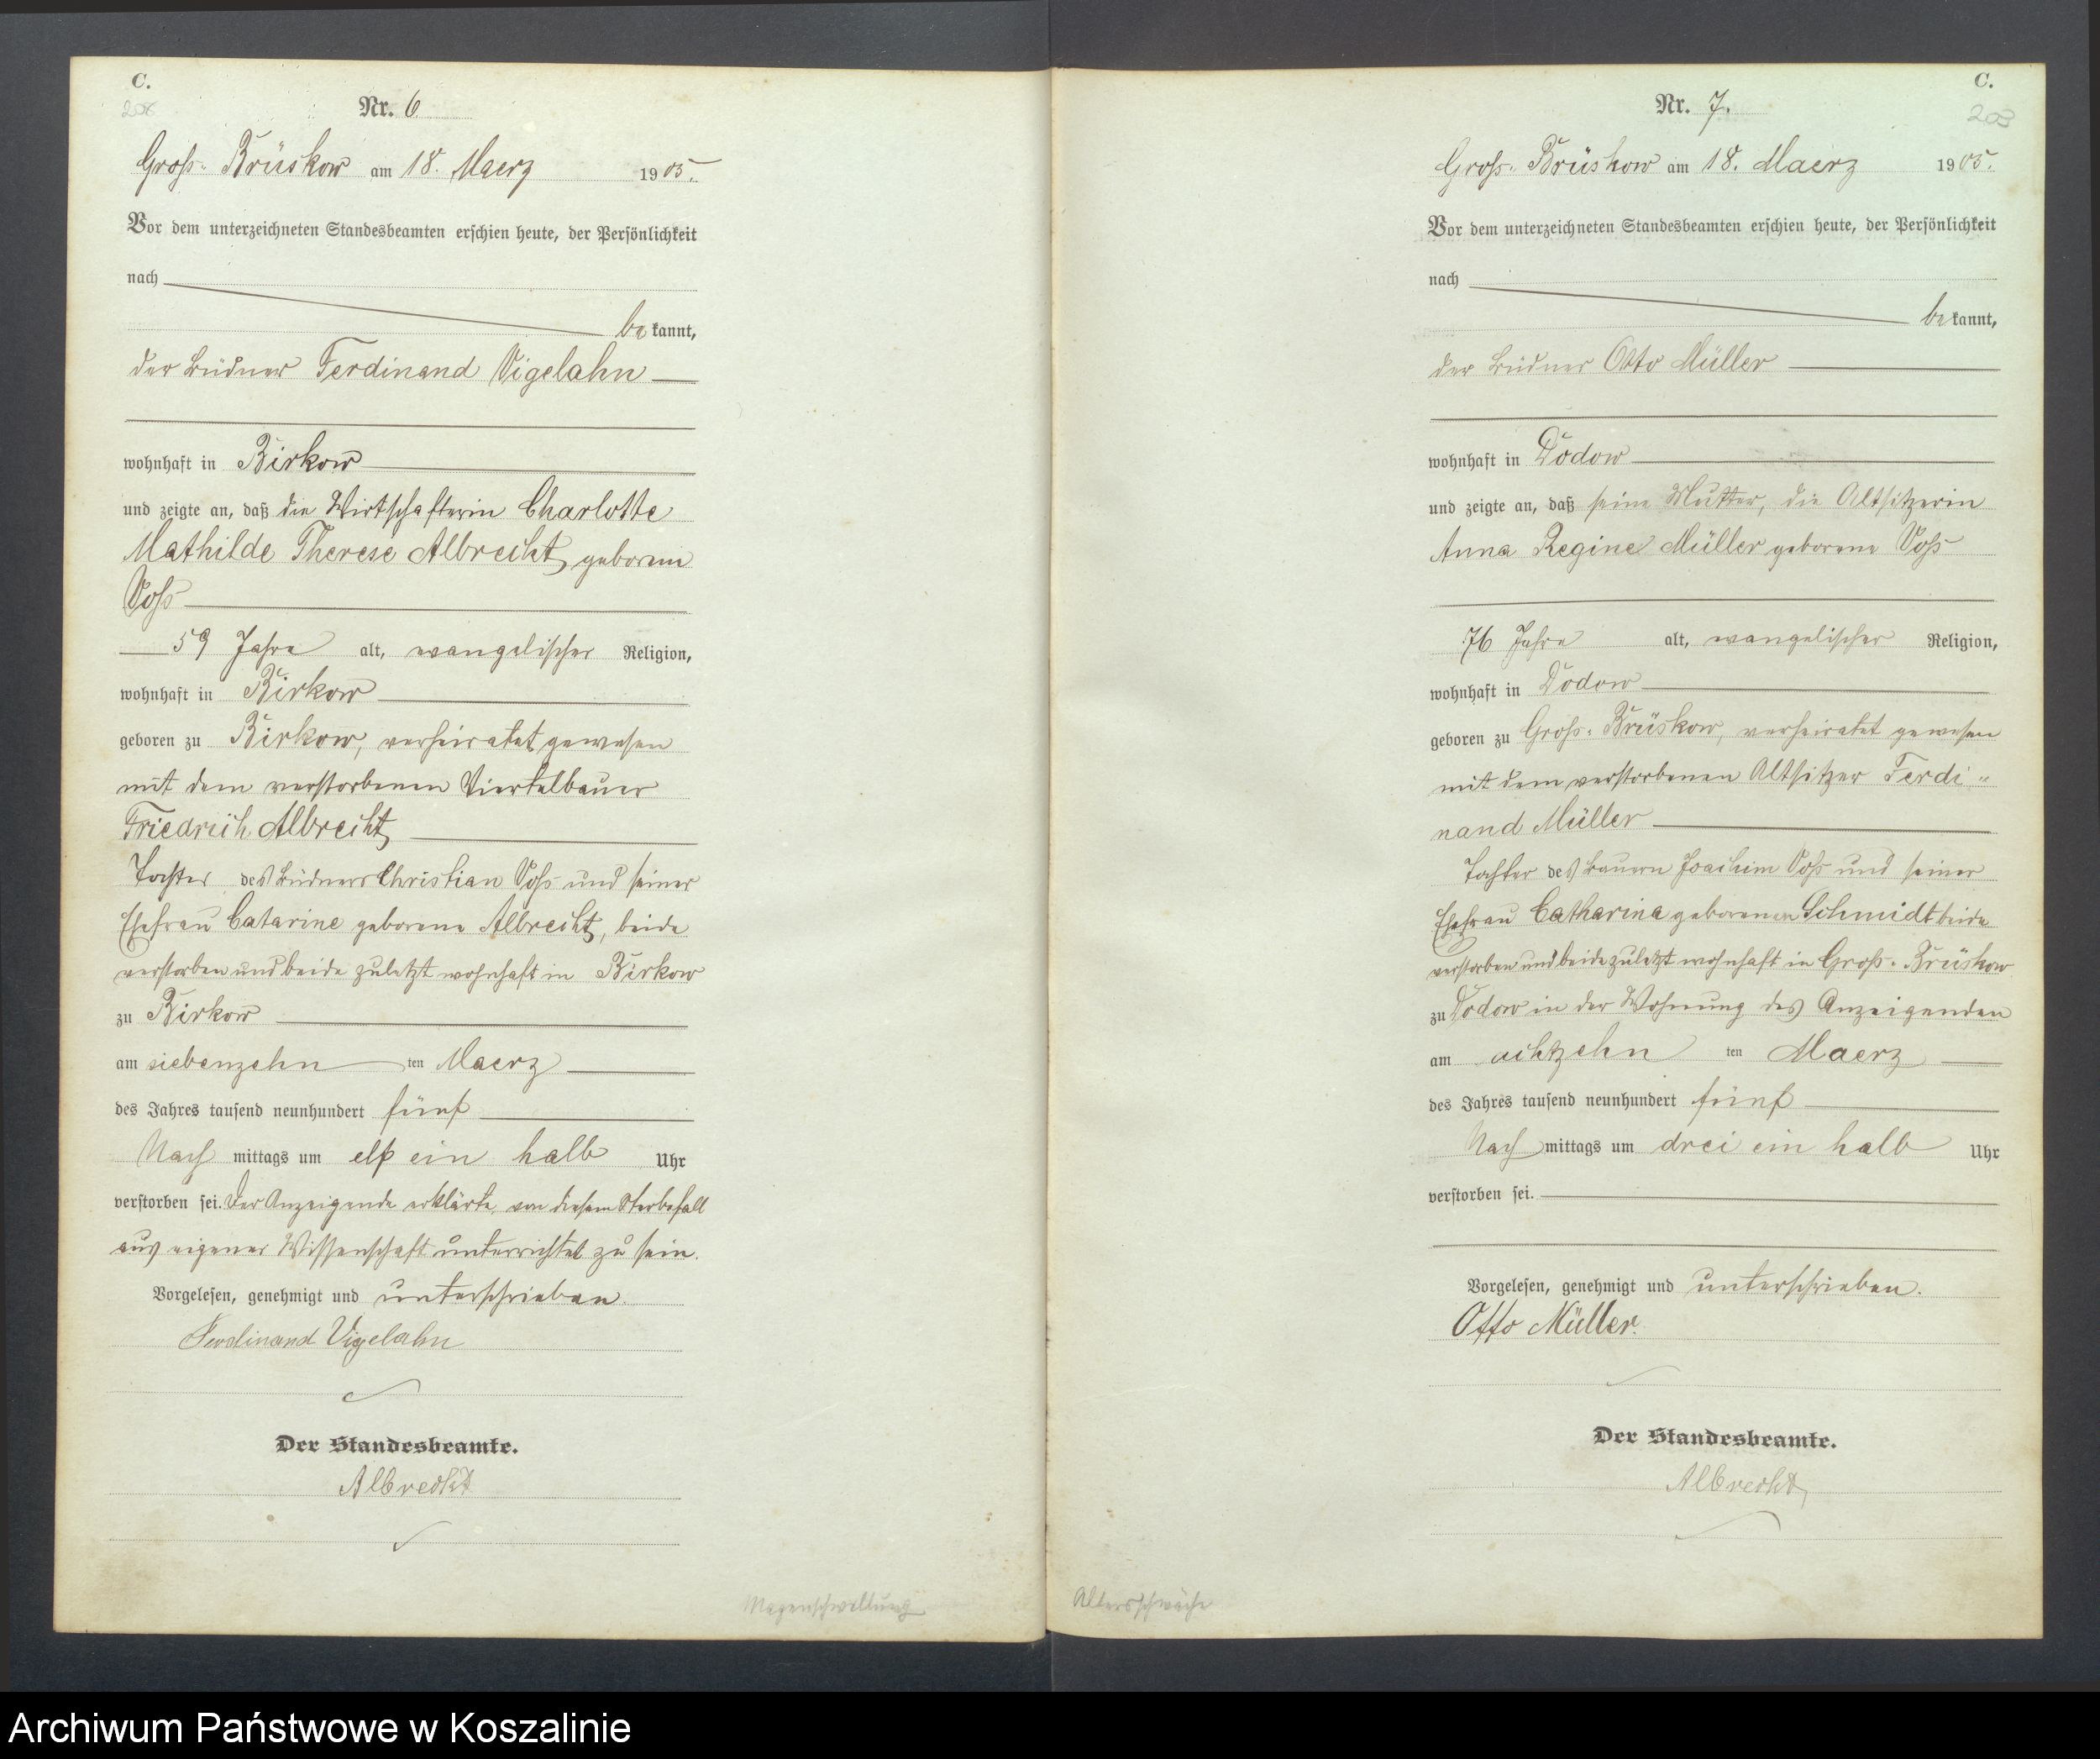 C.
208
Nr. 6
Gross-Brüskow am 18. Maerz 1905.
Vor dem unterzeichneten Standesbeamten erschien heute, der Persönlichkeit
nach
bekannt,
der Büdner Ferdinand Vigelahn
wohnhaft in Birkow
und zeigte an, daß die Wirtschafterin Charlotte
Mathilde Therese Albrecht geborene
Voss
59 Jahre alt, evangelischer Religion,
wohnhaft in Birkow
geboren zu Birkow, verheiratet gewesen
mit dem verstorbenen Viertelbauer
Friedrich Albrecht
Tochter des Büdners Christian Voss und seiner
Ehefrau Catarine geborene Albrecht, beide
verstorben und beide zuletzt wohnhaft in Birkow
zu Birkow
am siebenzehn ten Maerz
des Jahres tausend neunhundert fünf
Nach mittags um elf ein halb Uhr
verstorben sei. Der Anzeigende erklärte, von diesem Sterbefall
aus eigener Wissenschaft unterrichtet zu sein.
Vorgelesen, genehmigt und unterschrieben.
Ferdinand Vigelahn
Der Standesbeamte.
Albrecht
C.
203
Nr. 7.
Gross-Brüskow am 18. Maerz 1905.
Vor dem unterzeichneten Standesbeamten erschien heute, der Persönlichkeit
nach
bekannt,
der Büdner Otto Müller
wohnhaft in Dodow
und zeigte an, daß seine Mutter, die Altsitzerin
Anna Regine Müller geborene Voss
76 Jahre alt, evangelischer Religion,
wohnhaft in Dodow
geboren zu Gross-Brüskow, verheiratet gewesen
mit dem verstorbenen Altsitzer Ferdi-
nand Müller
Tochter des Bauern Joachim Voss und seiner
Ehefrau Catharina geborenen Schmidt beide
verstorben und beide zuletzt wohnhaft in Gross-Brüskow
zu Dodow in der Wohnung des Anzeigenden
am achtzehn ten Maerz
des Jahres tausend neunhundert fünf
Nach mittags um drei ein halb Uhr
verstorben sei.
Vorgelesen, genehmigt und unterschrieben.
Otto Müller.
Der Standesbeamte.
Albrecht
Altersschwäche
Archiwum Państwowe w Koszalinie